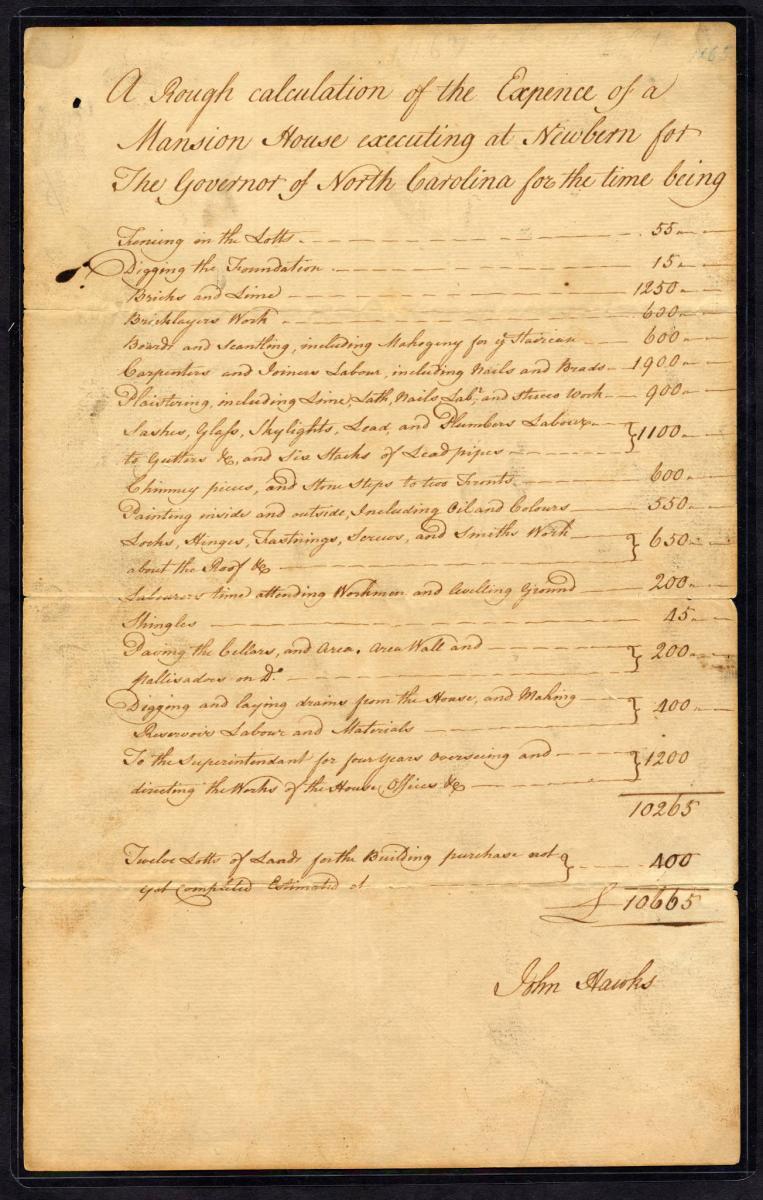 A Rough calculation of the Expence of a
Mansion House executing at Newbern for
The Governor of North Carolina for the time being
Fencing in the Lotts 55
Digging the Foundation 15
Bricks and Lime 1250
Bricklayers Work 600
Boards and Scantling, including Mahogeny for ye Staircase 600
Carpenters and Joiners Labour, including Nails and Brads 1900
Plaistering, including Lime, Lath, Nails, Labr. and Stucco Work 900
Sashes, Glass, Skylights, Lead, and Plumbers Labour
to Gutters &c, and Six Stacks of Lead pipes } 1100
Chimney pieces, and Stone Steps to two Fronts 600
Painting inside and outside, Including Oil and Colours 550
Locks, Hinges, Fastnings, Screws, and Smiths Work
about the Roof &c } 650
Labourers time attending Workmen and levelling Ground 200
Shingles 45
Paving the Cellars, and Area. Area Wall and
Pallisadoes on Do. } 200
Digging and laying drains from the House, and Making
Reservoirs Labour and Materials } 400
To the Superintendant for four Years overseeing and
directing the Works of the House, Offices &c } 1200
10265
Twelve Lotts of Lands for the Building purchase not
yet compleated Estimated at } 400
£ 10665
John Hawks